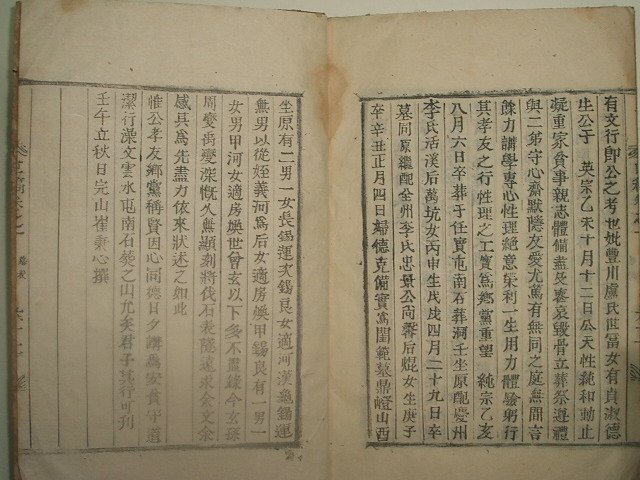 有文行郎公之考也妣豊川盧氏世富女有貞淑德
生公于 英宗乙未十月十二日公天性純和動止
凝重家貧事親志體備盡及喪哀毁骨立葬祭遵禮
與二弟守心齋默
友愛尤篤有無同之庭無間言
餘力講學專心性理絶意榮利一生用力體驗躬行
其孝友之行性理之工實爲鄕黨重望 純宗乙亥
八月六日卒葬于任實屯南石葬洞壬坐原配慶州
李氏活漢后萬坑女丙申生戊戌四月二十九日卒
墓同原繼配全州李氏忠景公尚馨后焜女生庚子
卒辛丑正月四日婦德克備實爲閨範墓鼎
山酉
坐原有二男一女長錫運次錫良女適河漢龜錫運
無男以從姪義河爲后女適房煥甲錫良有一男一
女男甲河女適房煥世曾玄以下多不盡錄今玄孫
周燮禹燮深慨久無顯刻將伐石表隧遠求余文余
感其爲先盡力依來狀述之如此
惟公孝友鄕黨稱賢因心同德日夕
爲安貧守道
潔行藻文雲水屯南石葬之山允矣君子其行可刊
壬午立秋日完山崔秉心撰